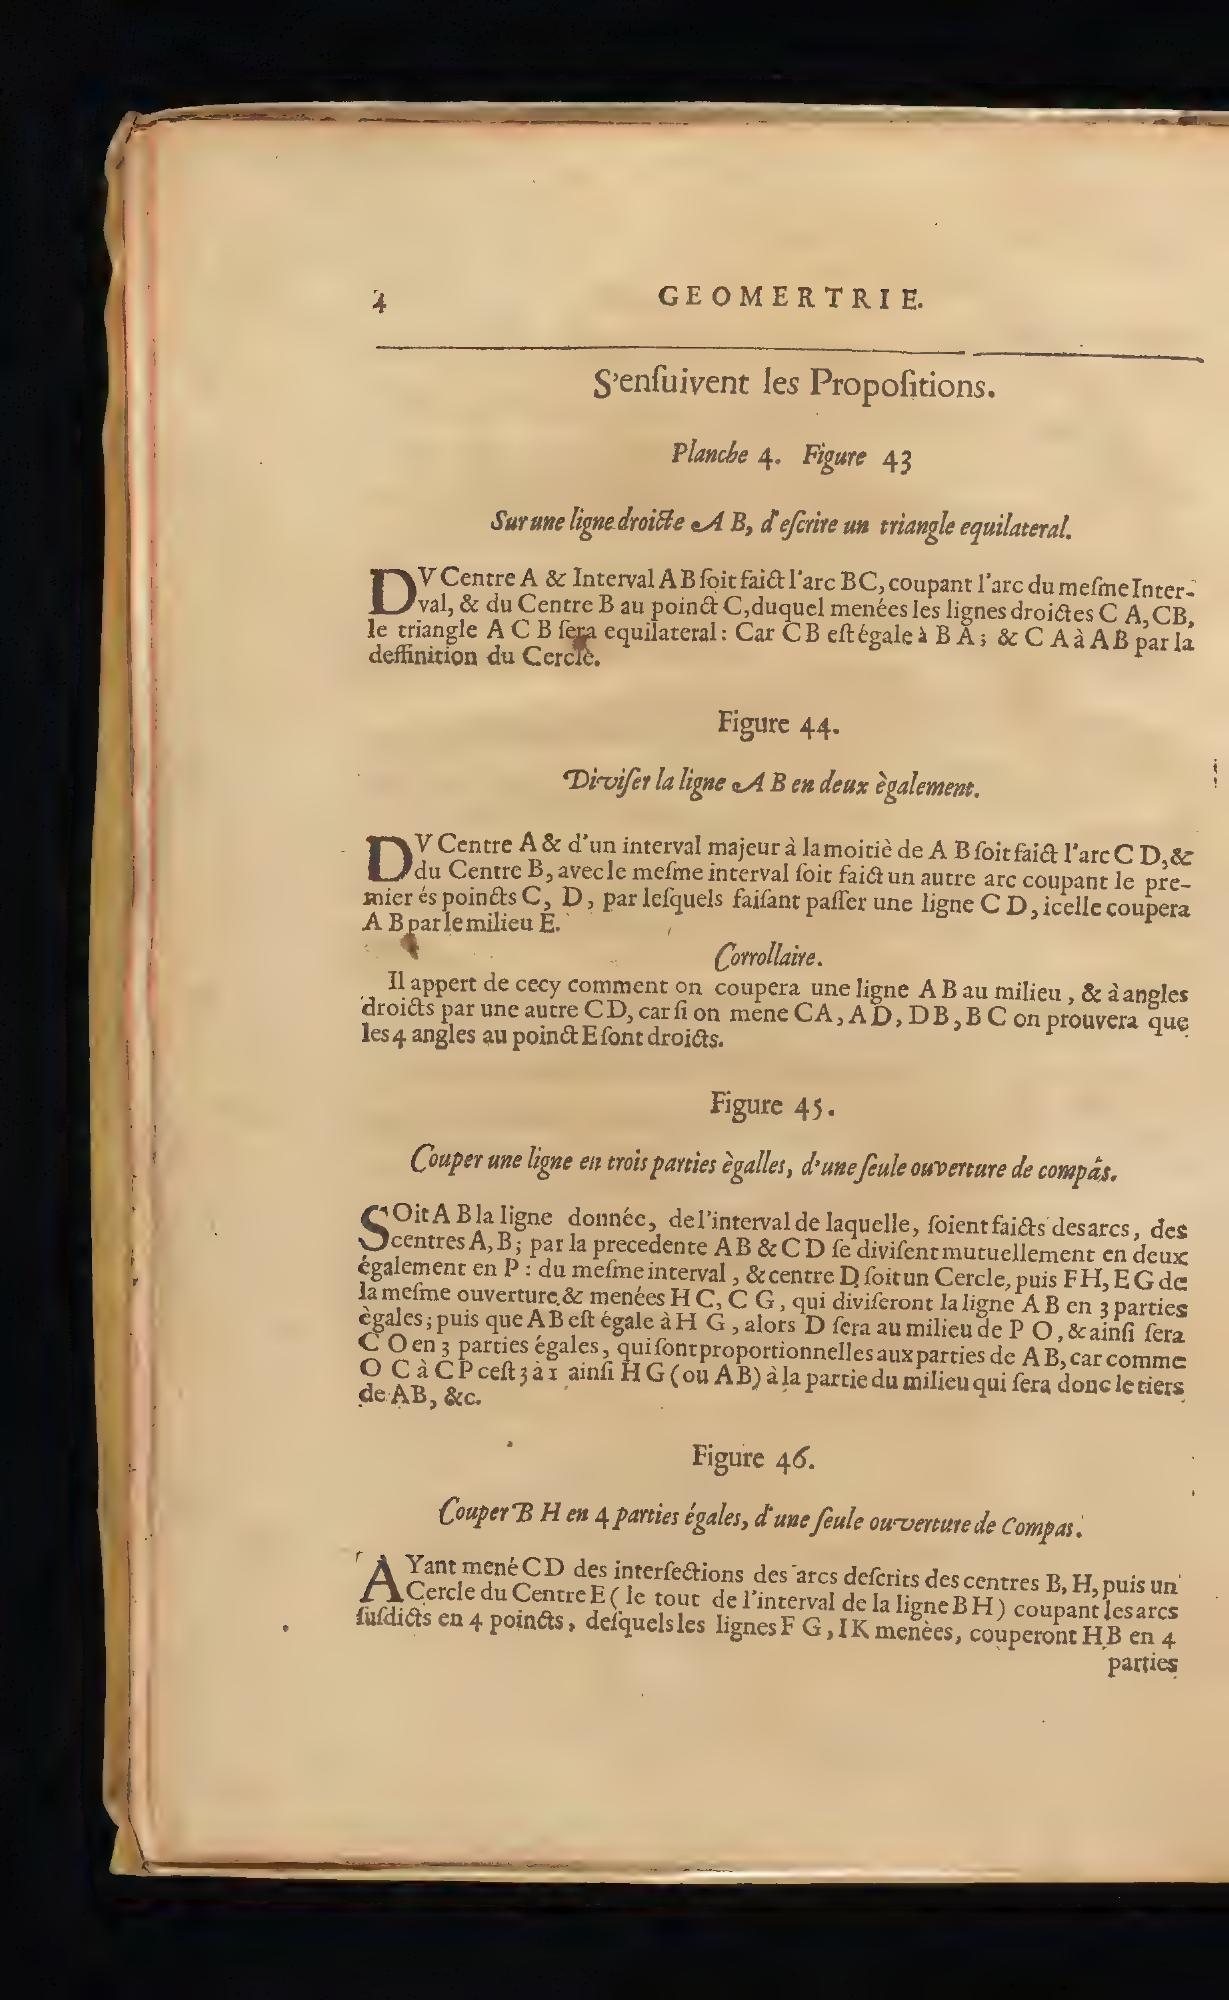 4 GEOMERTRIE.
S'enſuivent les Propoſitions.
Planche 4. Figure 43
Sur une ligne droicte A B, d'eſcrire un triangle equilateral.
DV Centre A & Interval A B ſoit faict l'arc BC, coupant l'arc du meſme Inter-
val, & du Centre B au poinct C, duquel menées les lignes droictes C A, CB,
le triangle A C B ſera equilateral: Car C B eſt égale à B A; & C A à A B par la
deffinition du Cercle.
Figure 44.
Diviſer la ligne A B en deux ègalement.
DV Centre A & d'un interval majeur à la moitiè de A B ſoit faict l'arc C D, &
du Centre B, avec le meſme interval ſoit faict un autre arc coupant le pre-
mier és poincts C, D, par leſquels faiſant paſſer une ligne C D, icelle coupera
A B par le milieu E.
Corrollaire.
Il appert de cecy comment on coupera une ligne A B au milieu, & à angles
droicts par une autre CD, car ſi on mene CA, A D, DB, B C on prouvera que
les 4 angles au poinct E ſont droicts.
Figure 45.
Couper une ligne en trois parties ègalles, d'une ſeule ouverture de compâs.
SOit A B la ligne donnée, de l'interval de laquelle, ſoient faicts des arcs, des
centres A, B; par la precedente AB & C D ſe diviſent mutuellement en deux
également en P: du meſme interval, & centre D ſoit un Cercle, puis FH, E G de
la meſme ouverture & menées H C, C G, qui diviſeront la ligne A B en 3 parties
ègales; puis que A B eſt égale à H G, alors D ſera au milieu de P O, & ainſi ſera
C O en 3 parties égales, qui ſont proportionnelles aux parties de A B, car comme
O C à C P ceſt 3 à 1 ainſi H G (ou AB) à la partie du milieu qui ſera donc le tiers
de AB, &c.
Figure 46.
Couper B H en 4 parties égales, d'une ſeule ouverture de Compas.
AYant mené C D des interſections des arcs deſcrits des centres B, H, puis un
Cercle du Centre E ( le tout de l'interval de la ligne B H ) coupant les arcs
ſuſdicts en 4 poincts, deſquels les lignes F G, I K menèes, couperont H B en 4
parties